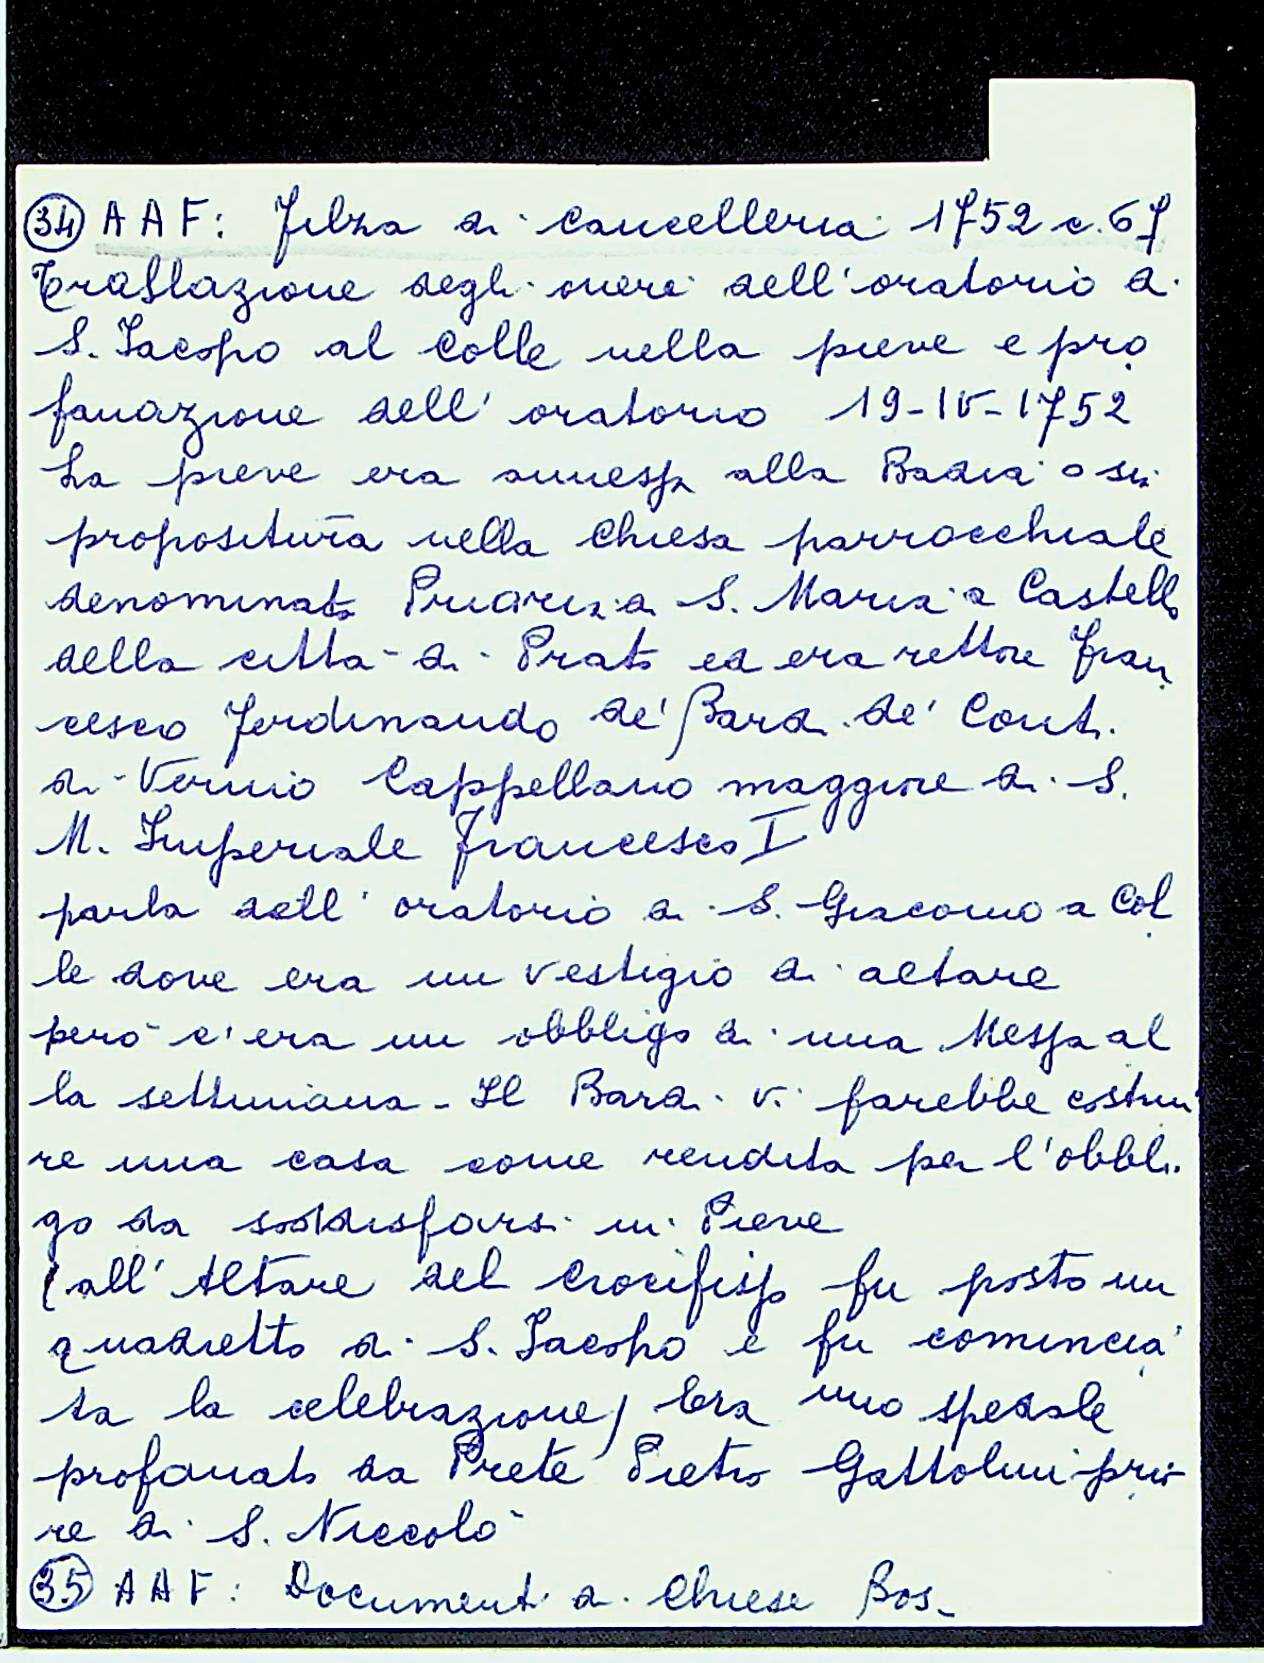 34 AAF: Filza di Cancelleria 1752 c. 67
Traslazione degli oneri dell'oratorio di
S. Jacopo al Colle nella pieve e pro
fanazione dell'oratorio 19-IV-1752
La pieve era annessa alla Badia o sia
propositura nella Chiesa parrocchiale
denominata S. Maria a Castello
della città di Prato ed era rettore Fran
cesco Ferdinando de' Bardi de' Conti
di Vernio Cappellano maggiore di S.
M. Imperiale Francesco I
parla dell'oratorio di S. Giacomo a Col
le dove era un vestigio di altare
però c'era un obbligo di una Messa al
la settimana - Il Bardi vi farebbe costrui
re una casa come rendita per l'obbli
go da soddisfarsi in Pieve
(all'Altare del Crocifisso fu posto un
quadretto di S. Jacopo e fu comincia
ta la celebrazione) Era uno spedale
profanato da Prete Pietro Gattolini prio
re di S. Niccolò
35 AAF: Documenti di Chiese Bos.